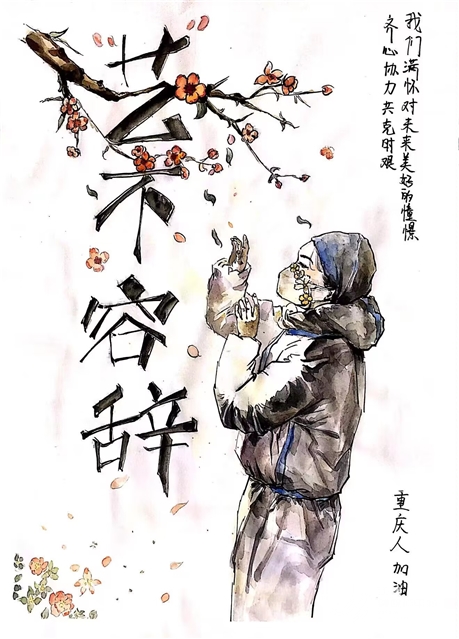 艺不容辞
我们满怀对未来美好的憧憬
齐心协力共克时艰
重庆人加油